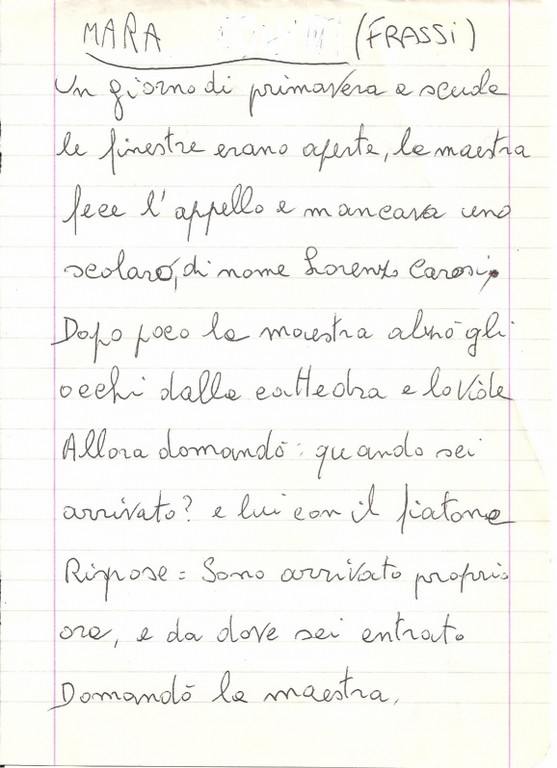 MARA (FRASSI)
Un giorno di primavera a scuola
le finestre erano aperte, la maestra
fece l'appello e mancava uno
scolaro, di nome Lorenzo Carosi,
Dopo poco la maestra alzò gli
occhi dalla cattedra e lo Vide
Allora domandò: quando sei
arrivato? e lui con il fiatone
Rispose = Sono arrivato proprio
ora, e da dove sei entrato
Domandò la maestra,